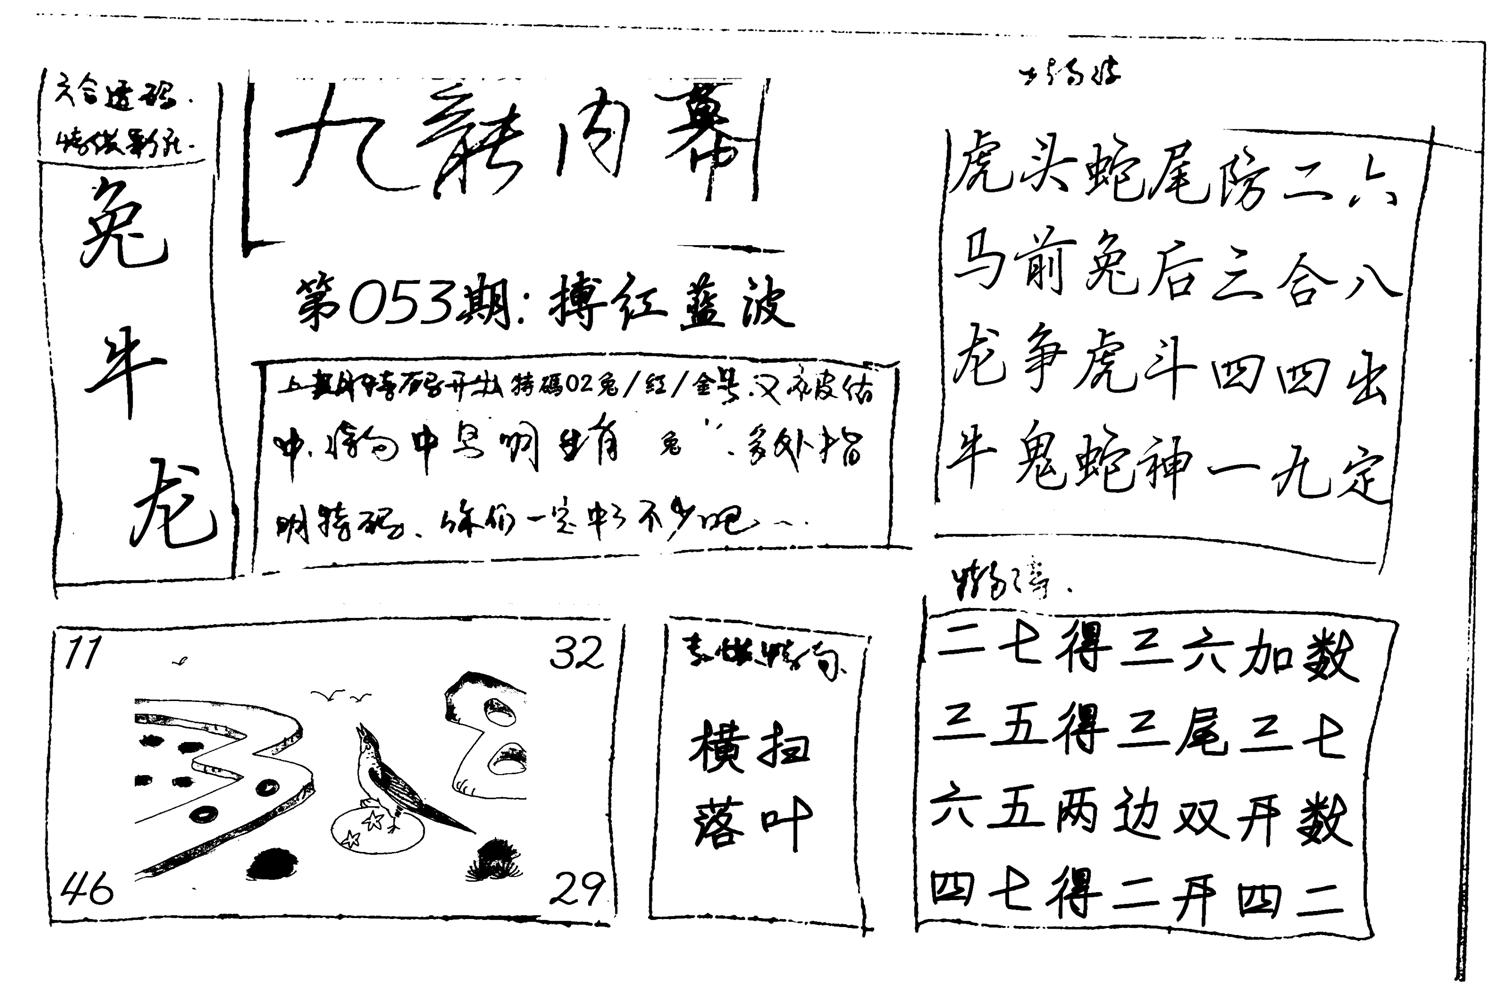 六合透码.
九龙内幕
兔
牛
龙
第053期:搏红蓝波
上期特码开出特碼02兔/红/金号.又被估
中.特句中早明生肖 兔".多处指
明特码、你们一定中了不少吧~.
虎头蛇尾防二六
马前兔后三合八
龙争虎斗四四出
牛鬼蛇神一九定
11
32
46
29
横扫
落叶
二七得三六加数
三五得三尾三七
六五两边双开数
四七得二开四二